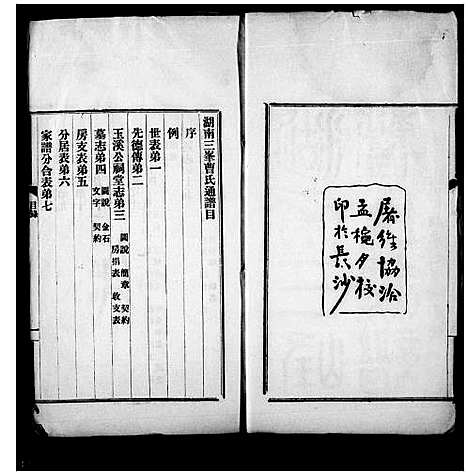 屠維協洽
孟槐夕校
印於長沙
湖南三峯曹氏通譜目
序
例
世表第一
先德傳第二
玉溪公祠堂志第三 圖說 簡章 契約 房捐表 收支表
墓志第四 圖說 金石 文字 契約
房支表第五
分居表第六
家譜分合表第七
目錄